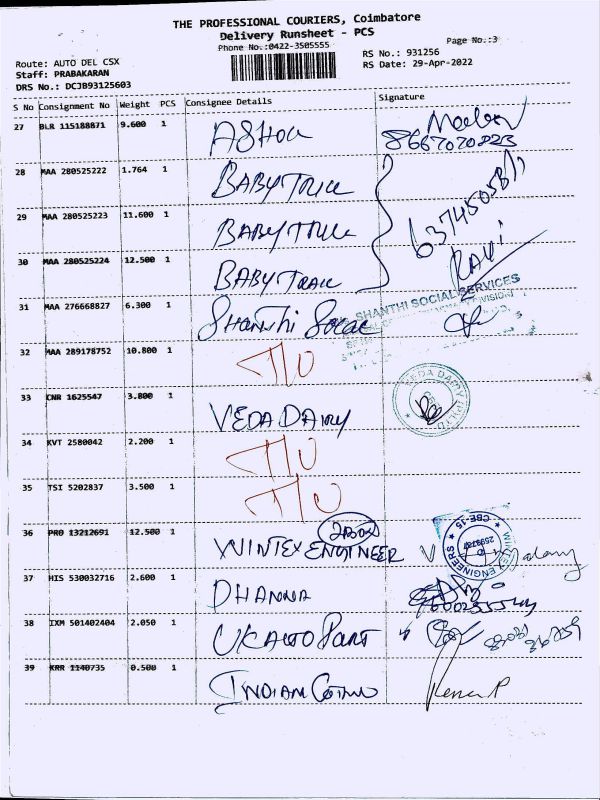 THE PROFESSIONAL COURIERS, Coimbatore
Delivery Runsheet - PCS
Phone No.:0422-3505555
Page No.:3
Route: AUTO DEL CSX
Staff: PRABAKARAN
DRS No.: DCJB93125603
RS No.: 931256
RS Date: 29-Apr-2022
S No Consignment No Weight PCS Consignee Details Signature
27 BLR 115188871 9.600 1 ASHOK
28 MAA 280525222 1.764 1 BABYTRICK
29 MAA 280525223 11.600 1 BABYTRICK
30 MAA 280525224 12.500 1 BABYTRAIL
RAVI
31 MAA 276668827 6.300 1 Shanthi Social
SHANTHI SOCIAL SERVICES
32 MAA 289178752 10.800 1 T/O
33 CNR 1625547 3.800 1 VEDA DAIRY
VEDA DAIRY
34 KVT 2580042 2.200 1 T/O
35 TSI 5202837 3.500 1 T/O
36 PRO 13212691 12.500 1 WINTEX ENGINEER
2 Box
WINTEX ENGINEERS
CBE-15
37 HIS 530032716 2.600 1 DHANNA
38 IXM 501402404 2.050 1 UK Auto Part
39 KRR 1140735 0.500 1 INDIAN